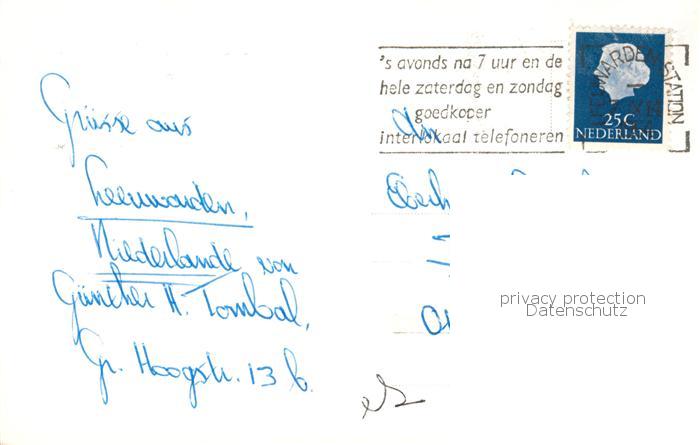 Grüsse aus
Leeuwarden,
Niederlande, von
Günther H. Tombal,
Gr. Hoogstr. 13 b.
's avonds na 7 uur en de
hele zaterdag en zondag
goedkoper
interlokaal telefoneren
LEEUWARDEN STATION
25C
NEDERLAND
An
privacy protection
Datenschutz